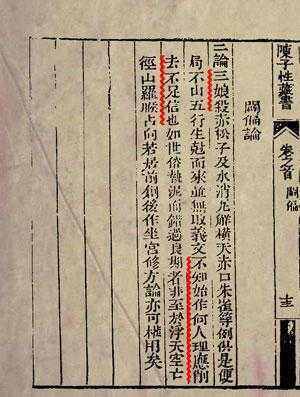 陳子性藏書
卷之首
闢偏
十三
闢偏論
三論三娘殺赤松子及水消瓦解橫天赤口朱雀等例俱是便
局不由五行生尅而來並無取義又不知始作何人理應削
去不足信也如世俗執泥而錯過良期者非至於浮天空亡
徑山羅睺占向若於前創後作坐宮修方論亦可權用矣